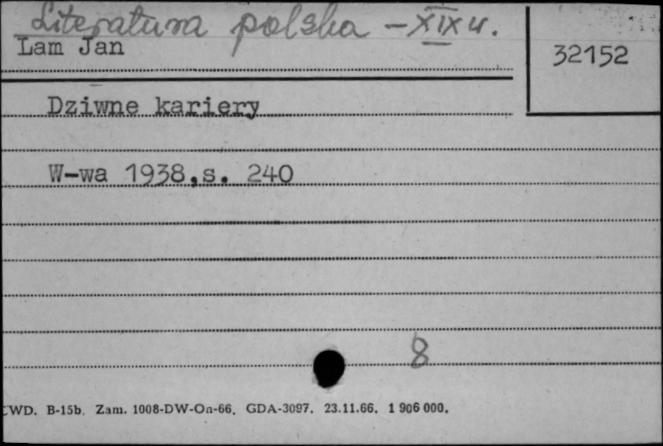 Literatura polska - XIX w.
Lam Jan
32152
Dziwne kariery
W-wa 1938,s. 240
8
WD. B-15b. Zam. 1008-DW-On-66. GDA-3097. 23.11.66. 1 906 000.